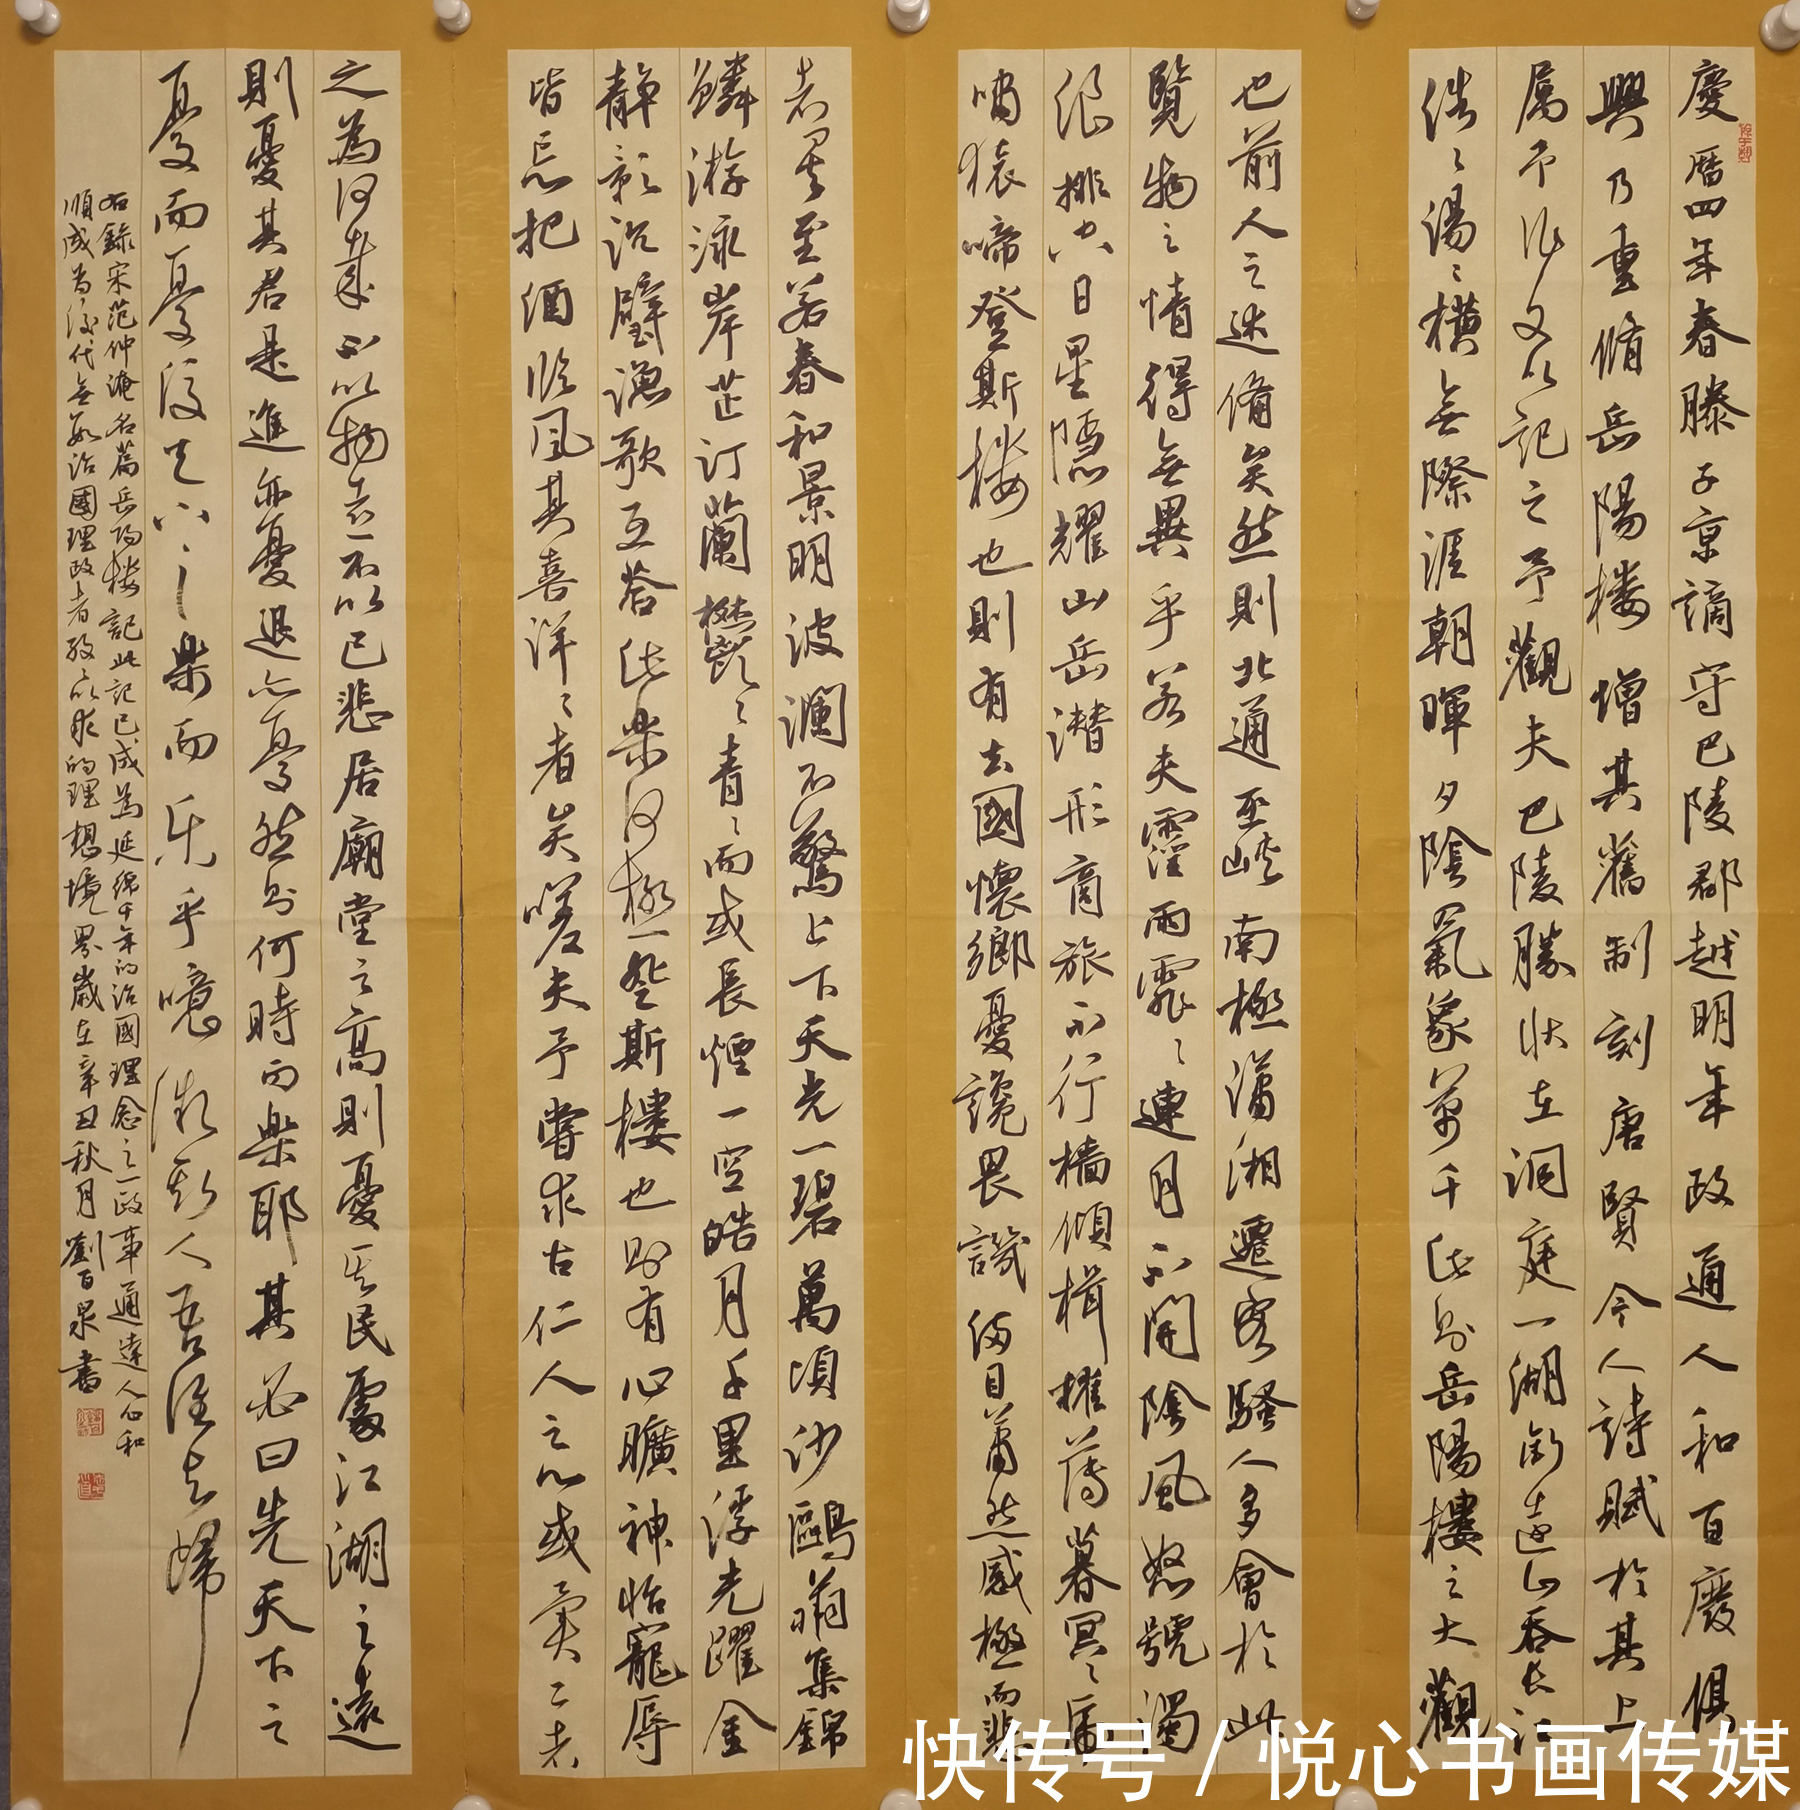 慶曆四年春滕子京謫守巴陵郡越明年政通人和百廢俱
興乃重脩岳陽楼增其舊制刻唐賢今人詩賦於其上
属予作文以記之予觀夫巴陵勝狀在洞庭一湖銜遠山吞長江
浩〻湯〻横無際涯朝暉夕陰氣象萬千此則岳陽樓之大觀
也前人之述備矣然則北通巫峽南極瀟湘遷客騷人多會於此
覽物之情得無異乎若夫霪雨霏〻連月不開陰風怒號濁
浪排空日星隱耀山岳潛形商旅不行檣傾楫摧薄暮冥〻虎
嘯猿啼登斯楼也則有去國懷鄉憂讒畏譏滿目蕭然感極而悲
者矣至若春和景明波瀾不驚上下天光一碧萬頃沙鷗翔集錦
鱗游泳岸芷汀蘭鬱〻青〻而或長煙一空皓月千里浮光躍金
靜影沉璧漁歌互答此樂何極登斯樓也則有心曠神怡寵辱
皆忘把酒臨風其喜洋〻者矣嗟夫予嘗求古仁人之心或異二者
之為何哉不以物喜不以己悲居廟堂之高則憂其民處江湖之遠
則憂其君是進亦憂退亦憂然則何時而樂耶其必曰先天下之
憂而憂後天下之樂而乐乎噫微斯人吾誰與歸
右錄宋范仲淹名篇岳陽楼記此記已成為延綿千年的治國理念之一政事通達人心和
順成為後代無數治國理政者孜〻以求的理想境界歲在辛丑秋月劉百泉書
快传号/悦心书画传媒